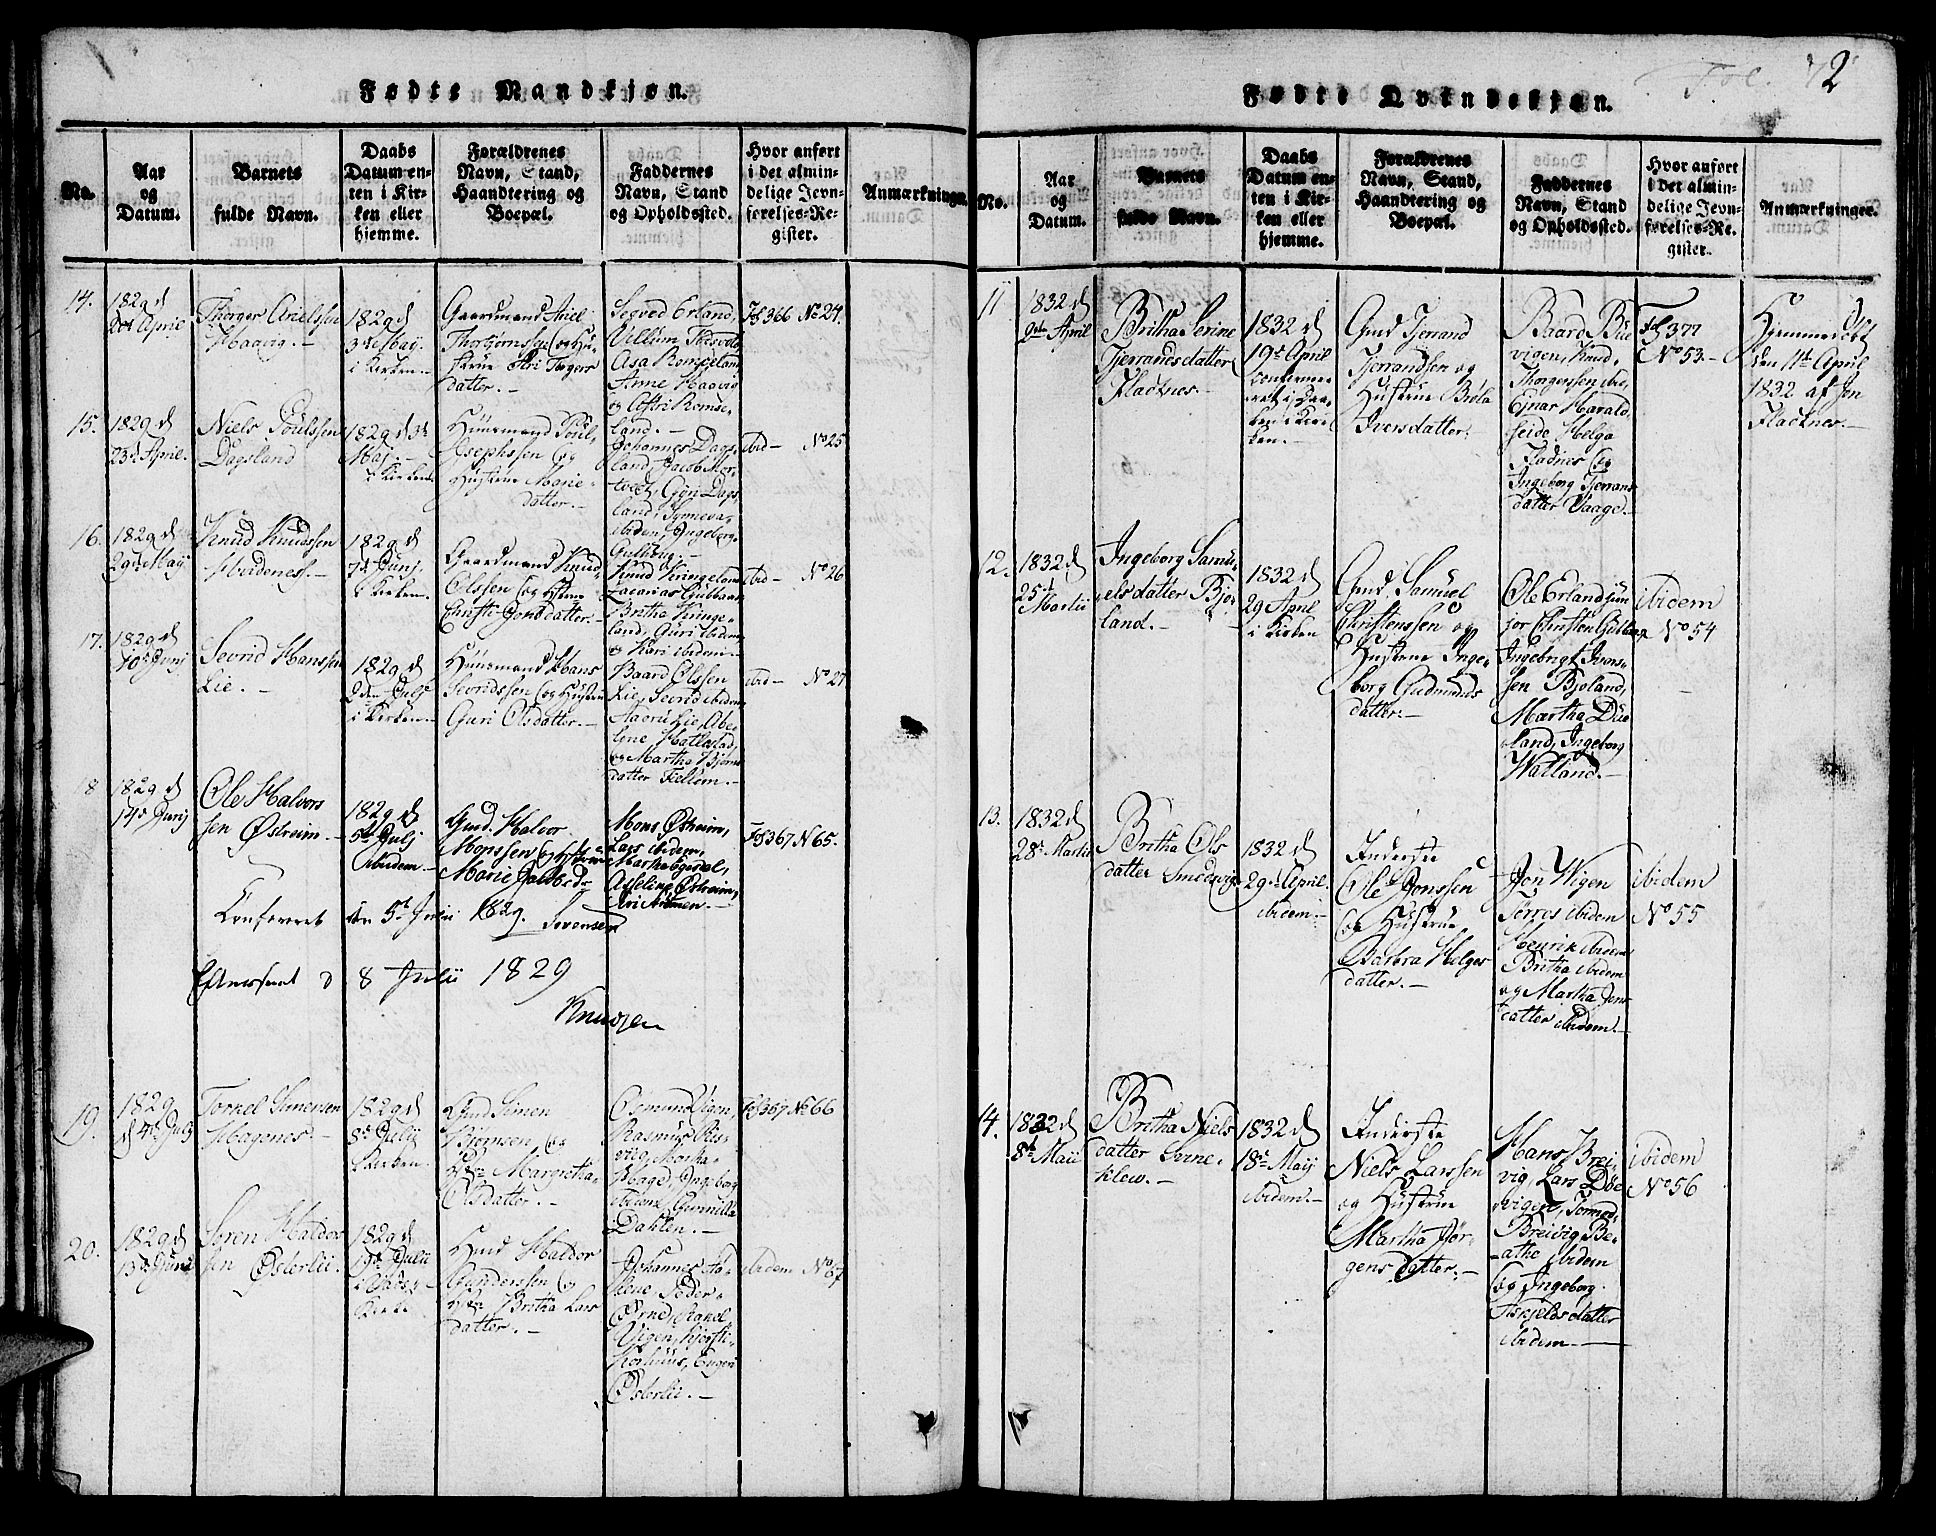 Fødte Mandkjøn.
No.
Aar
og
Datum.
Barnets
fulde Navn.
Daabs
Datum en-
ten i Kir-
ken eller
hjemme.
Forældrenes
Navn, Stand,
Haandtering og
Boepæl.
Faddernes
Navn, Stand
og Opholdssted.
Hvor anført
i det almin-
delige Jevn-
førelses-Re-
gister.
Anmærkninger.
14.
1829 d
April
Thorger Arielssen
Haavig.
1829 d
3de May.
i Kirken.
Gaardmand Ariel
Thorbjørnssen og Hu-
strue Ari Torgers
datter.
Segved Erland,
Villum
Asa Romseland
Anne Haavig
og Astri Romse-
land.
Fol 366 No 24.
15.
1829 d
23de April.
Niels Poulssen
Dagsland
1829 d 3de
Maj.
i Kirken
Huusmand Poul
Josephssen og
Hustrue Marie
datter.
Johannes Dags-
land, Jacob Mor-
tveet, Gjøn Dags
land, Synneva
ibidem, Ingeborg
Gulhoug.
ibid No 25
16.
1829 d
29de May
Knud Knudssen
Hidenes.
1829 d
7de Junj.
i Kirken.
Gaardmand Knud
Olssen og Hustrue
Christi Jonsdatter.
Knud Kringeland
Zacarias Gulhaug
Britha Kringe-
land, Guri ibidem
og Kari ibidem.
ibid No 26
17.
1829 d
10de Junj
Sevrid Hanssen
Lie.
1829 d
2den Julj
i Kirken
Huusmand Hans
Sevridssen og Hustrue
Guri Olsdatter.
Baard Olssen
Lie, Sevrid ibidem
Lie, Abe-
line Hatlestad,
og Martha Bjørns
datter Fellum.
ibid No 27
18
1829 d
14de Junij
Ole Halvors
sen Østreim.
1829 d
5te Julj
ibidem
Gmd. Halvor
Monssen og Hustrue
Marie Jacobsd.
Mons Østreim,
Lars ibidem,
Martha Lierdal,
Aseline Østreim,
Ari Aamen.
Fol 367 N 65.
Confereret den 5te Julii 1829. Sørensen
Efterseet d 8 Julii 1829
Knudsen
19.
1829
d 4de Julj
Torkel Simensen
Hagenes.
1829 d
8de Julii
i Kirken.
Gmd Simen
Bjørnsen, og
Hustrue Margretha
Olsdatter.
Osmund Vigen,
Rasmus Ris-
vig, Martha
Hage, Ingeborg
ibidem, Gunnilla
Dahlen.
Fol 367 No 66
20.
1829 d
13de Junii
Søren Haldor
sen Østerlii.
1829 d
19de Julii
i
Kirke
Hmd Haldor
Gunderssen og
Hustrue Britha Lars
datter.
Johannes
Peder
Randi
Vigen, Kjersti
Korhuus, Inger
Østerlii.
ibidem No 67
Fol. 72
Fødte Qvindekjøn.
No.
Aar
og
Datum.
Barnets
fulde Navn.
Daabs
Datum en-
ten i Kir-
ken eller
hjemme.
Forældrenes
Navn, Stand,
Haandtering og
Boepæl.
Faddernes
Navn, Stand
og Opholdssted.
Hvor anført
i det almin-
delige Jevn-
førelses-Re-
gister.
Anmærkninger.
11
1832 d
9de April
Britha Serine
Tjerrandsdatter
Flacknes
1832 d
19de April
confirme-
ret i Daa-
ben i Kir-
ken.
Gmd Tjerrand
Tjerrandsen og
Hustrue Brita
Iversdatter.
Baard Bue
vigen, Knud
Thorgerssen ibid,
Ejnar Harald-
seide Helga
Fladnes og
Ingeborg Tjerrans
datter Vaage.
Fol 377
No 53.
Hjemmedøbt
den 11te April
1832 af Jon
Flacknes.
12.
1832 d
25de
Martii
Ingeborg Samu-
elsdatter Bjo-
land.
1832 d
29 April
i Kirken
Gmd. Samuel
Christenssen og
Hustrue Inge-
borg Gudmunds
datter.
Ole Erlandsjun
jor Christen Gulhaug
Ingebrigt Ivers-
sen Bjoland,
Martha Due-
land, Ingeborg
Watland.
ibidem
No 54
13.
1832 d
28de Martii
Britha Ols
datter Smedsvig
1832 d
29de April.
ibidem.
Inderste
Ole Jonssen
og Hustrue
Barbra Helges
datter.
Jon Wigen
Sørres ibidem
Henrik ibidem
Britha ibidem
og Martha Jens
datter ibidem.
ibidem
No 55
14.
1832 d
8de Maii
Britha Niels
datter Svine-
klew.
1832 d
18de Maij
ibidem.
Inderste
Niels Larssen
og Hustrue
Martha Jør-
gensdatter.
Hans Brei-
vig, Lars Due
vigen, Tormod
Breivig Be-
athe ibidem
og Ingeborg
Askjelds datter
ibidem
ibidem
No 56